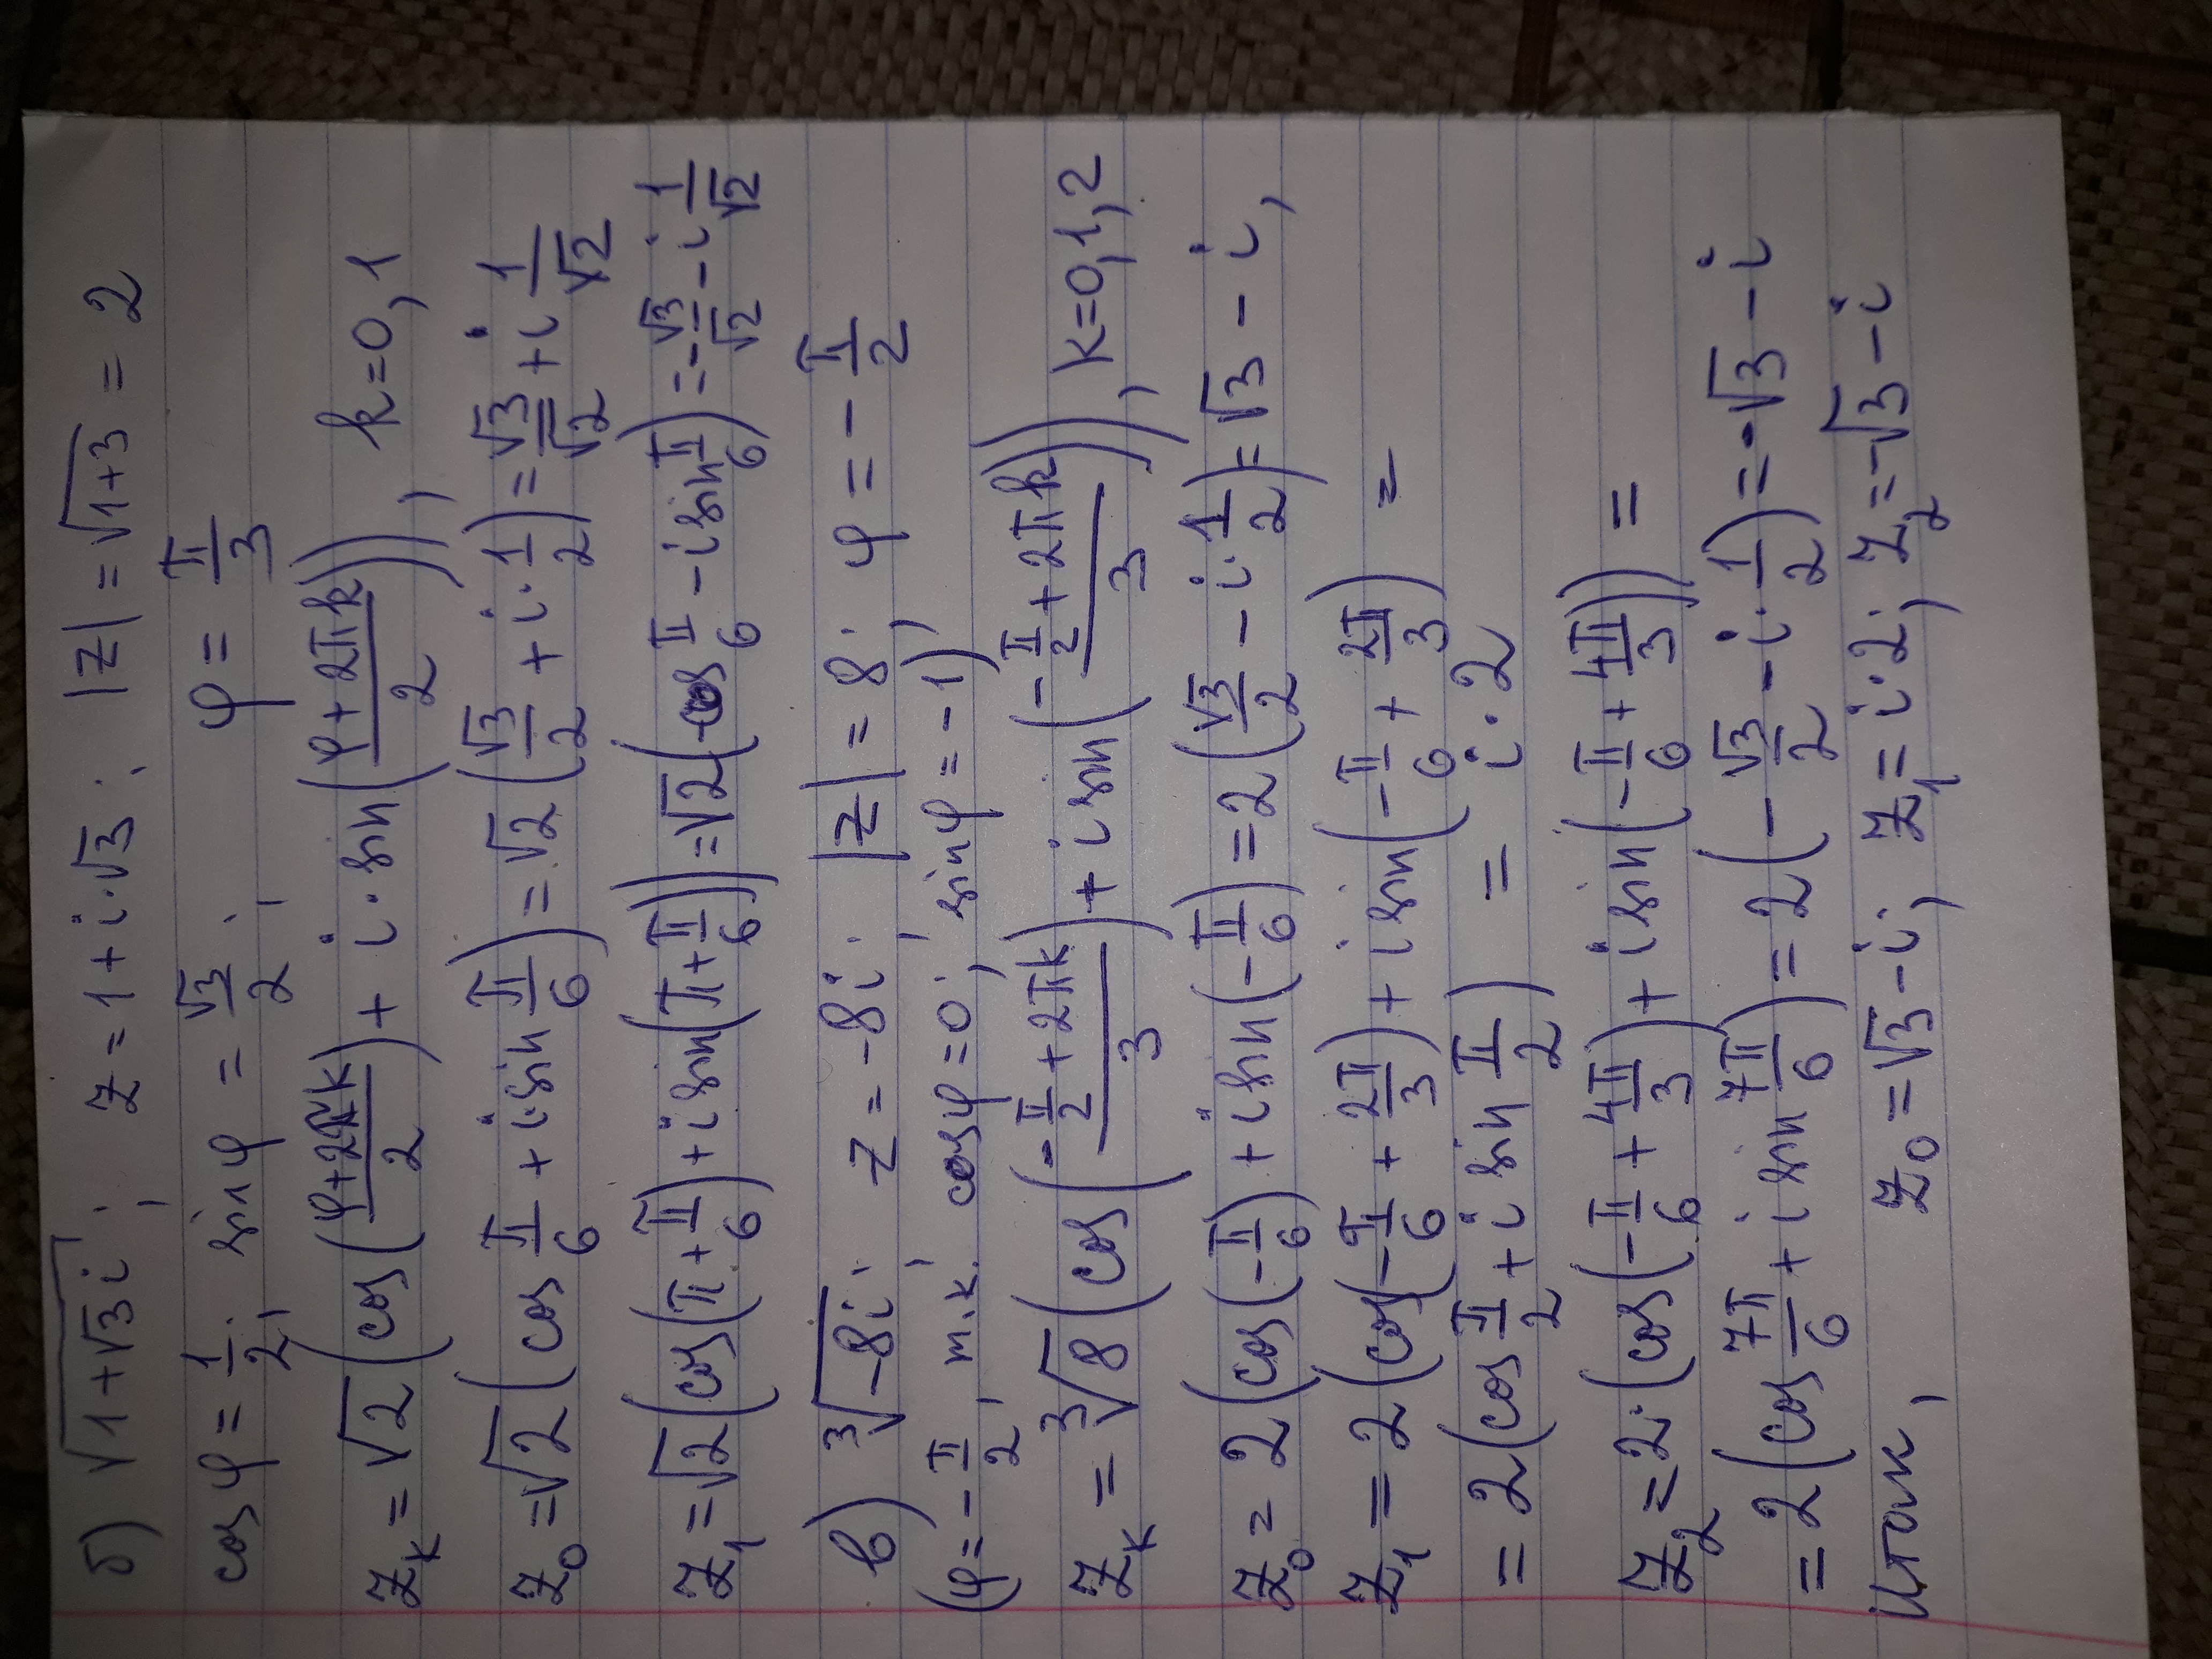 б) √(1+√3i) ; z = 1 + i·√3 ; |z| = √(1+3) = 2
cos φ = 1/2 ; sin φ = √3/2 ; φ = π/3
z_k = √2 (cos((φ+2πk)/2) + i·sin((φ+2πk)/2)), k=0,1
z_0 = √2 (cos π/6 + i·sin π/6) = √2 (√3/2 + i·1/2) = √3/√2 + i 1/√2
z_1 = √2 (cos(π+π/6) + i sin(π+π/6)) = √2 (-cos π/6 - i sin π/6) = -√3/√2 - i 1/√2
в) ∛(-8i) ; z = -8i ; |z| = 8 ; φ = -π/2
(φ = -π/2, т.к. cos φ = 0 ; sin φ = -1)
z_k = ∛8 (cos((-π/2+2πk)/3) + i sin((-π/2+2πk)/3)), k=0,1,2
z_0 = 2 (cos(-π/6) + i sin(-π/6)) = 2 (√3/2 - i·1/2) = √3 - i,
z_1 = 2 (cos(-π/6 + 2π/3) + i sin(-π/6 + 2π/3) =
= 2 (cos π/2 + i sin π/2) = i·2
z_2 = 2·(cos(-π/6 + 4π/3) + i sin(-π/6 + 4π/3)) =
= 2 (cos 7π/6 + i sin 7π/6) = 2 (-√3/2 - i·1/2) = -√3 - i
Итак, z_0 = √3 - i ; z_1 = i·2 ; z_2 = -√3 - i